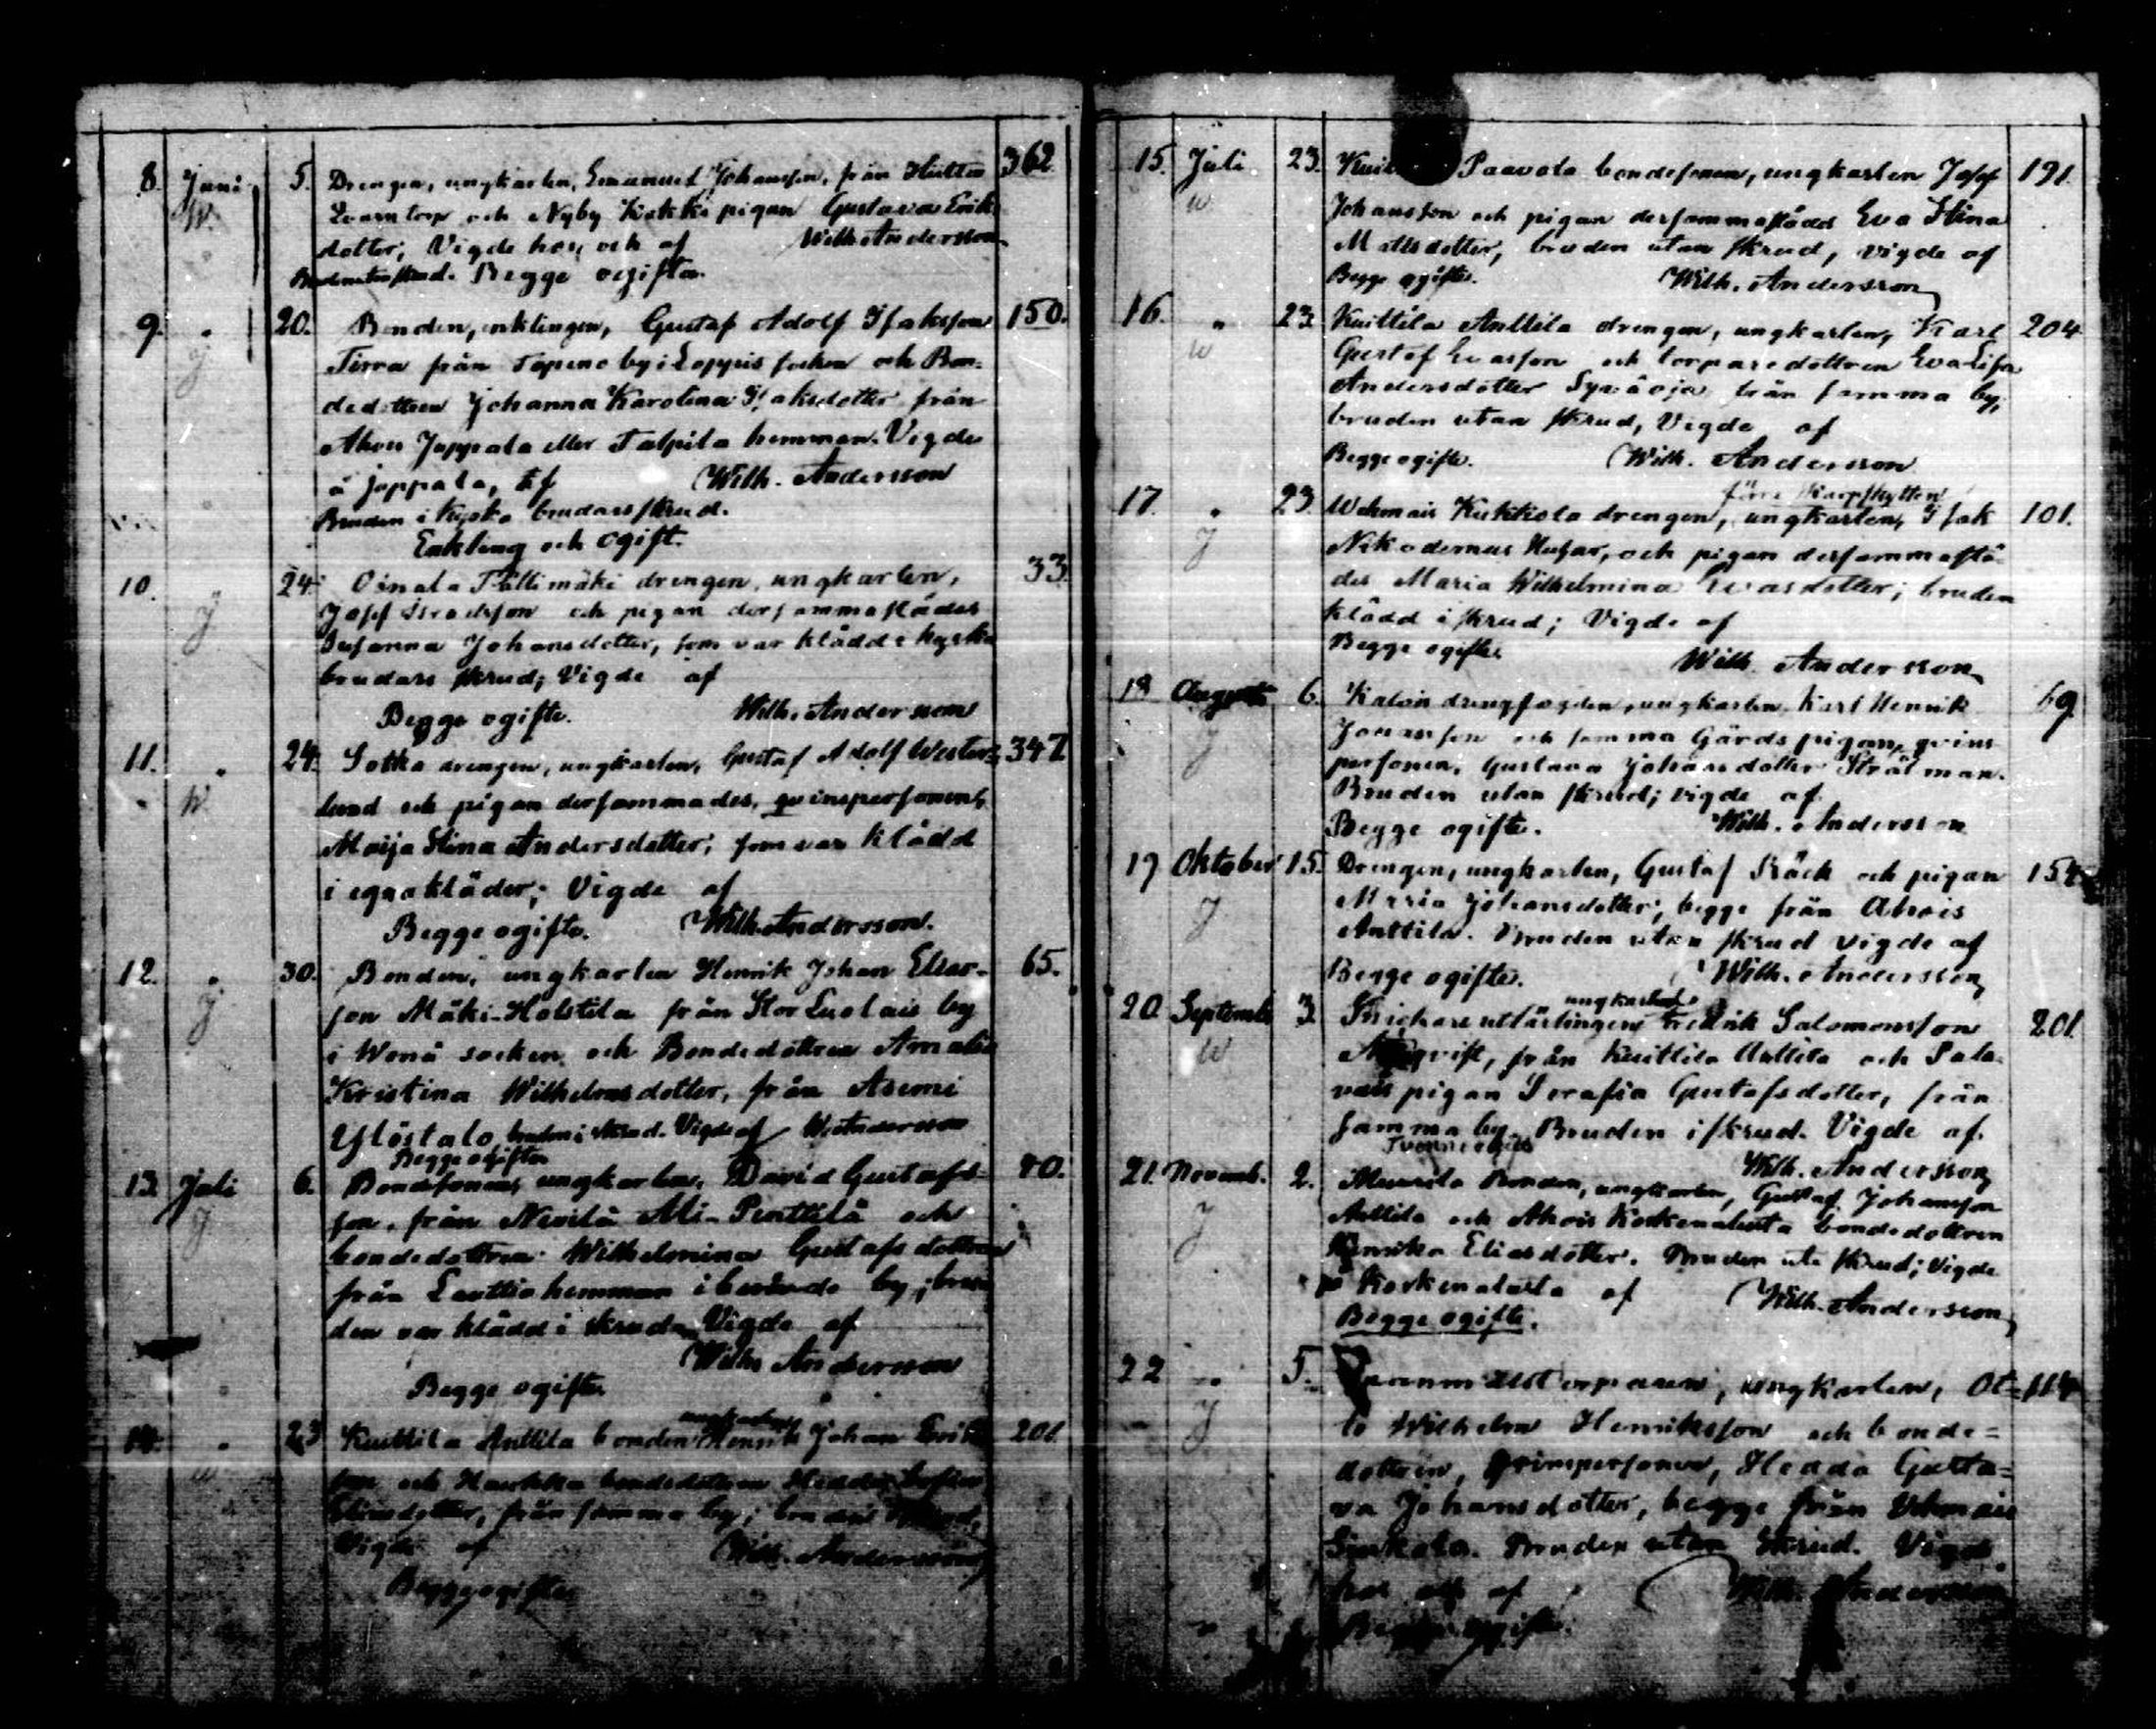 8. Juni 5. Drengen, ungkarlen, Emanuel Johansson, från 362
W. och Nyby pigan Gustava Eriks
dotter; Vigde hos och af Wilh. Andersson
Begge ogifta.
9. " 20. Bonden, enklingen, Gustaf Adolf Isaksson 150.
J från Topeno by i Loppis socken och Bon-
dedottren Johanna Karolina Isaksdotter från
Ahois Joppala eller Talpila hemman. Vigde
å Joppala, af Wilh. Andersson
Bruden i kyska brudars skrud.
Enkling och ogift.
10. 24. drengen, ungkarlen, 33.
J och pigan dersammastädes
Susanna Johansdotter, som var klädd i kyska
brudars skrud; Vigde af
Begge ogifte. Wilh. Andersson
11. " 24. Sotka drengen, ungkarlen, Gustaf Adolf Wester- 347
W lund och pigan dersammades, qvinspersonen,
Maija Stina Andersdotter; som var klädd
i egna kläder; Vigde af
Begge ogifte. Wilh. Andersson.
12. " 30. Bonden, ungkarlen Henrik Johan Elias- 65.
J son Mäki-Holstila från Stor Luolais by
i Wånå socken och Bondedottren Amalia
Kristina Wilhelmsdotter, från
Ylöstalo, bruden i skrud. Vigde af W. Andersson
Begge ogifta
13. Juli 6. Bondesonen, ungkarlen, David Gustafs-
J son, från Ali-Penttilä och
bondedottren Wilhelmina Gustafsdotter
från hemman i by; bru
den var klädd i skrud. Vigde af
Wilh. Andersson
Begge ogifta
14. " 23 Kuittila Anttila bonden Henrik Johan 201.
W son och bondedottren Hedda
Eliasdotter, från samma by;
Vigde af Wilh. Andersson
Begge ogifte
15. Juli. 23. Paavola bondesonen, ungkarlen Josef 191.
W Johansson och pigan dersammastädes Eva Stina
Mattsdotter, bruden utan skrud, vigde af
Begge ogifte. Wilh. Andersson
16. " 23. Kuittila Anttila drengen, ungkarlen, Karl 204
W Gustaf Evasson och torparedottren Eva Lisa
Andersdotter från samma by,
bruden utan skrud, Vigde af
Begge ogifte. Wilh. Andersson
förra skarpskytten
17. " 23. Wehmais Kukkola drengen, ungkarlen, Isak 101.
J Nikodemus Husar, och pigan dersammastä-
des Maria Wilhelmina Evasdotter; bruden
klädd i skrud; Vigde af
Begge ogifte Wilh. Andersson
18 Augusti 6. drengfogden, ungkarlen, Karl Henrik 69
J Johansson och samma Gårds pigan, qvins
personen, Gustava Johansdotter Strålman.
Bruden utan skrud; vigde af
Begge ogifte. Wilh. Andersson
19 Oktober 15. Drengen, ungkarlen, Gustaf och pigan 154
J Maria Johansdotter, begge från Ahois
Anttila. Bruden utan skrud vigde af
Begge ogifte. Wilh. Andersson
ungkarlen
20. Septemb 3. Fredrik Salomonsson 201.
W från Kuittila Anttila och
pigan Serafia Gustafsdotter, från
samma by. Bruden i skrud. Vigde af
Wilh. Andersson
21. Novemb. 2. bonden, ungkarlen, Gustaf Johansson
J Anttila och Ahois Korkenalusta bondedottren
Henrika Eliasdotter. Bruden utan skrud; Vigde
på Korkenalusta af Wilh. Andersson
Begge ogifte.
22 " 5. ungkarlen, Ot- 114
J to Wilhelm Henriksson och bonde-
dottren, qvinspersonen, Hedda Gusta-
va Johansdotter, begge från Vehmais
Bruden utan skrud. Vigde
hos och af Wilh. Andersson
Begge ogifte.